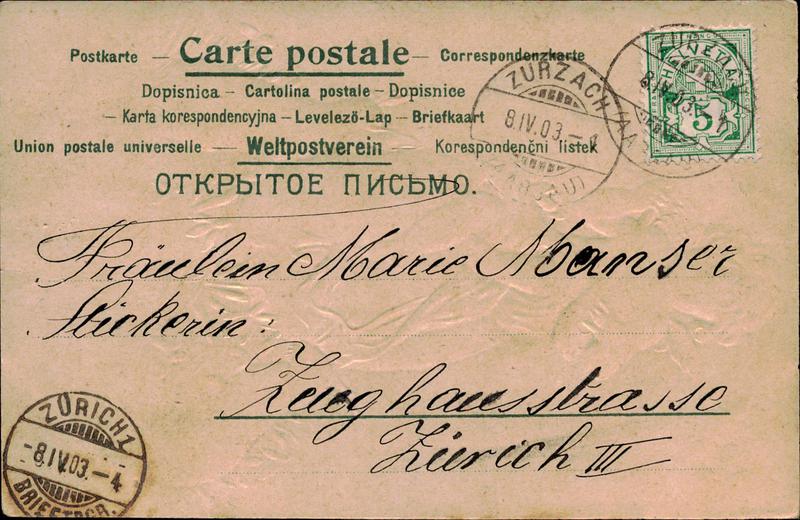 Postkarte — Carte postale — Correspondenzkarte
Dopisnica — Cartolina postale — Dopisnice
— Karta korespondencyjna — Levelező-Lap — Briefkaart
Union postale universelle — Weltpostverein — Korespondenční listek
ОТКРЫТОЕ ПИСЬМО.
HELVETIA
5
ZURZACH
8.IV.03.–4
(AARGAU)
8.IV.03.–4
Fräulein Marie Manser
Stickerin:
Zeughausstrasse
Zürich III
ZÜRICH 1
-8.IV.03.–4
BRIEFTRGR.